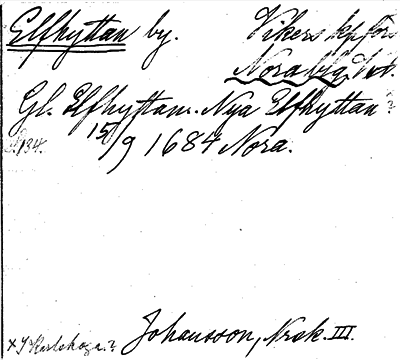 Elfhyttan by. Vikers kpl förs
Nora
Gl. Elfhyttan. Nya Elfhyttan ?
S. 134. 15/9 1684 Nora.
x I Karlskoga. ?
Johansson, Nrsk. III.